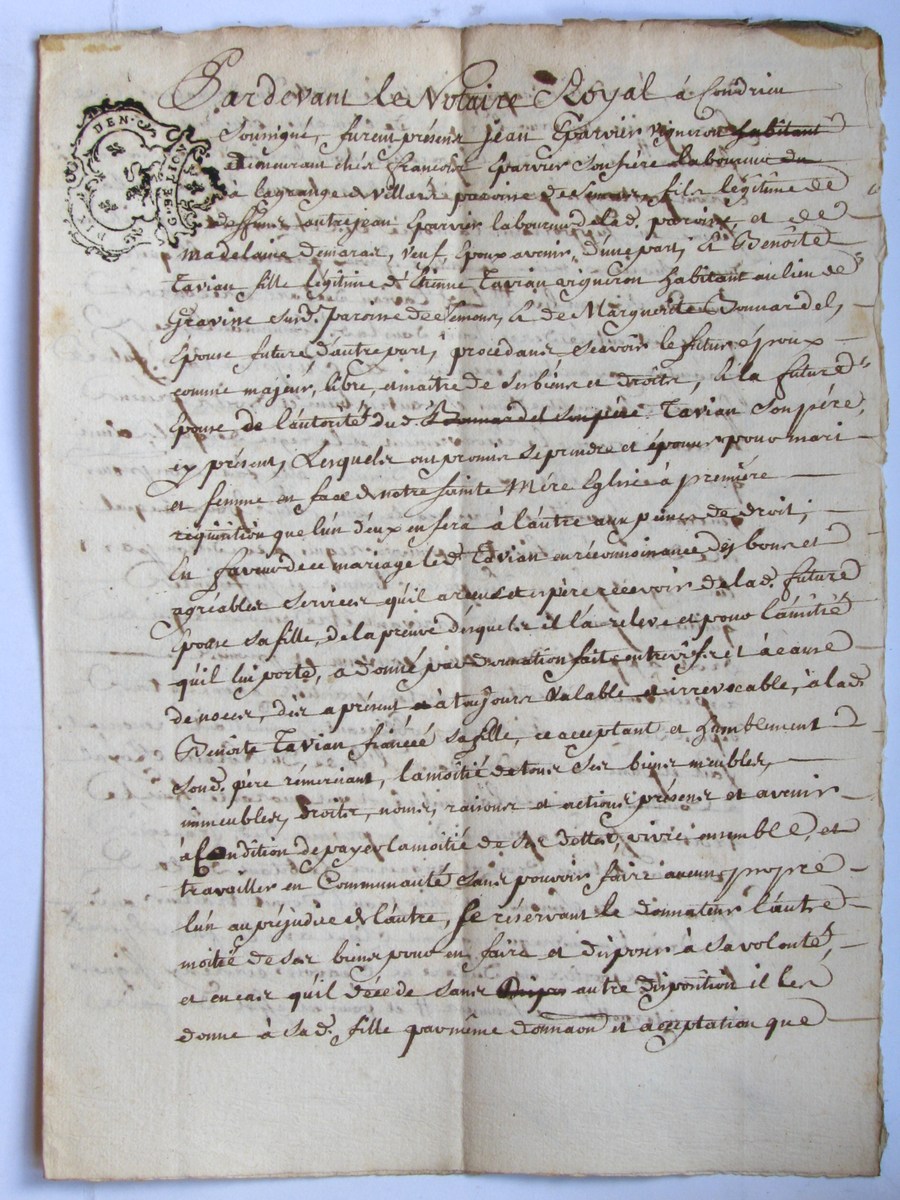 DEN.
Pardevant le Notaire Royal à Condrieu
Soussigné, furent présens Jean Eparvier vigneron habitant
demeurant chés françois Eparvier son frère laboureur du
a lagrange de Villars paroisse de Semons, fils légitime de
deffunt autre jean Eparvier laboureur de lad. paroisse, et de
Madelaine Demaras, veuf, Epoux avenir, d'une part, Et Benôite
Tavian fille légitime d'Etienne Tavian vigneron habitant au lieu de
Gravine susd. paroisse de Semons, Et de Marguerite Bonnardel,
Epouse future d'autre part, procedans sçavoir le futur époux
comme majeur, libre, et maitre de ses biens et droits, Et la future
Epouse de l'autorité dud. Bonnardel son père Tavian son père,
icy présent, Lesquels ont promis se prendre et épouser pour mari
et femme en face de notre sainte Mére Eglise à première
requisition que l'un d'eux en fera à l'autre aux peines de droit,
En faveur de ce mariage led. Tavian en réconnoissance des bons et
agréables services qu'il a reçus et espère recevoir de la d. future
Epouse sa fille, de la preuve desquels il l'a releve et pour l'amitié
qu'il lui porte, a donné par donnation fait entre vifs et à cause
de noces, dès a présent à toujours valable et irrevocable, à la d.
Benôite Tavian fiancée sa fille, ce acceptant et humblement
son d. père rémerciant, la moitié de tous ses biens meubles,
immeubles, droits, noms, raisons et actions présens et avenir
à Condition de payer la moitié de ses dettes, vivre ensemble, et
travailler en Communauté sans pouvoir faire aucun propre
l'un au préjudice de l'autre, se réservant le donnateur l'autre
moitié de ses biens pour en faire et disposer à sa volonté,
et en cas qu'il décede sans autre disposition il les
donne à sa d. fille par même donnaon et acceptation que